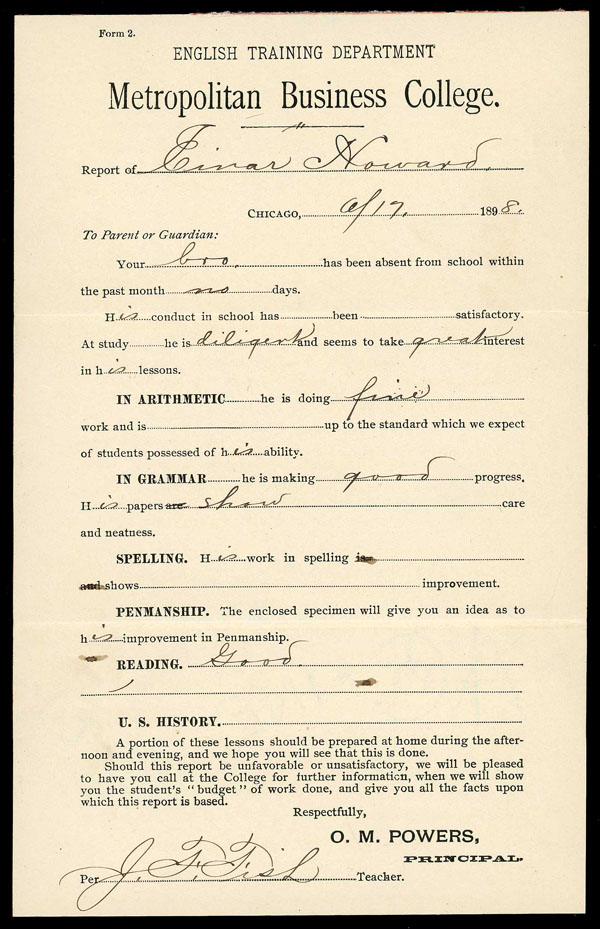 Form 2.
ENGLISH TRAINING DEPARTMENT
Metropolitan Business College.
Report of Einar Howard.
CHICAGO, 6/17. 1898.
To Parent or Guardian:
Your bro. has been absent from school within
the past month no days.
His conduct in school has been satisfactory.
At study he is diligent and seems to take great interest
in his lessons.
IN ARITHMETIC he is doing fine
work and is up to the standard which we expect
of students possessed of his ability.
IN GRAMMAR he is making good progress.
His papers are show care
and neatness.
SPELLING. His work in spelling is
and shows improvement.
PENMANSHIP. The enclosed specimen will give you an idea as to
his improvement in Penmanship.
READING. Good.
U. S. HISTORY.
A portion of these lessons should be prepared at home during the after-
noon and evening, and we hope you will see that this is done.
Should this report be unfavorable or unsatisfactory, we will be pleased
to have you call at the College for further information, when we will show
you the student's "budget" of work done, and give you all the facts upon
which this report is based.
Respectfully,
O. M. POWERS,
PRINCIPAL.
Per J. F. Fish Teacher.